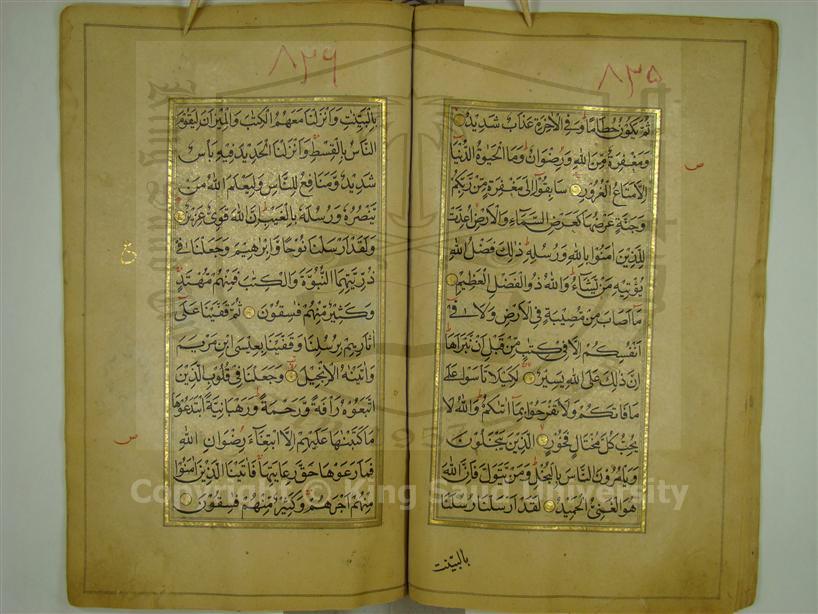 ٨٣٥
ثم يكون حطاما وفي الاخرة عذاب شديد
ومغفرة من الله ورضوان وما الحيوة الدنيا
الا متاع الغرور سابقوا الى مغفرة من ربكم
وجنة عرضها كعرض السماء والارض اعدت
للذين امنوا بالله ورسله ذلك فضل الله
يؤتيه من يشاء والله ذو الفضل العظيم
ما اصاب من مصيبة في الارض ولا في
انفسكم الا في كتب من قبل ان نبراها
ان ذلك على الله يسير لكيلا تاسوا على
ما فاتكم ولا تفرحوا بما اتىكم والله لا
يحب كل مختال فخور الذين يبخلون
ويامرون الناس بالبخل ومن يتول فان الله
هو الغني الحميد لقد ارسلنا رسلنا
بالبينت
٨٣٦
بالبينت وانزلنا معهم الكتب والميزان ليقوم
الناس بالقسط وانزلنا الحديد فيه باس
شديد ومنافع للناس وليعلم الله من
ينصره ورسله بالغيب ان الله قوي عزيز
ولقد ارسلنا نوحا وابرهيم وجعلنا في
ذريتهما النبوة والكتب فمنهم مهتد
وكثير منهم فسقون ثم قفينا على
اثارهم برسلنا وقفينا بعيسى ابن مريم
واتينه الانجيل وجعلنا في قلوب الذين
اتبعوه رافة ورحمة ورهبانية ابتدعوها
ما كتبنها عليهم الا ابتغاء رضوان الله
فما رعوها حق رعايتها فاتينا الذين امنوا
منهم اجرهم وكثير منهم فسقون
ع
Copyright © King Saud University
1957